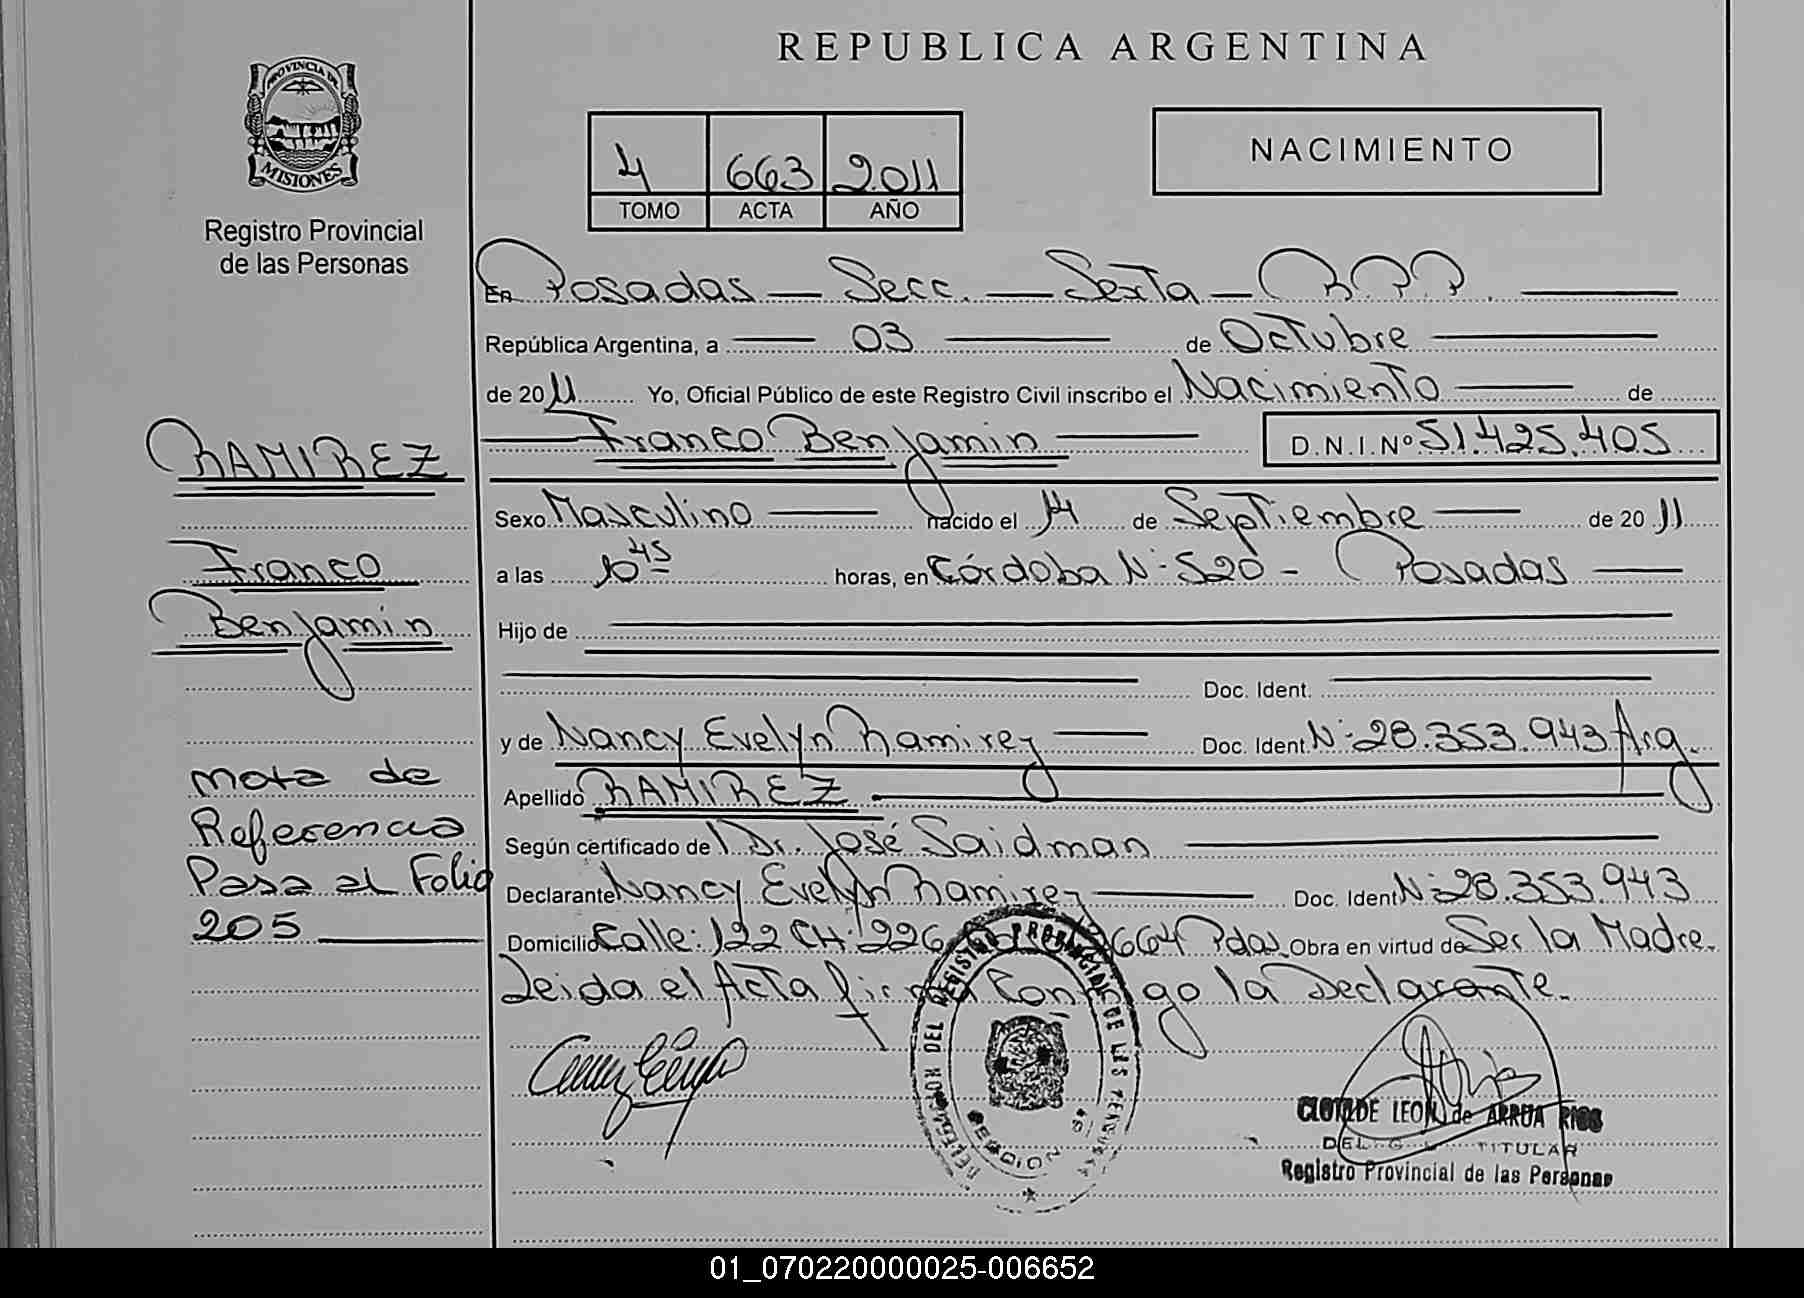 REPUBLICA ARGENTINA
PROVINCIA DE
MISIONES
Registro Provincial
de las Personas
4 663 2011
TOMO ACTA AÑO
NACIMIENTO
En Posadas — Secc. — Sexta — R.P.P. —
República Argentina, a — 03 — de Octubre —
de 2011 Yo, Oficial Público de este Registro Civil inscribo el Nacimiento — de
— Franco Benjamin — D.N.I.Nº 51.425.405
Sexo Masculino — nacido el 14 de Septiembre — de 2011
a las 10 45 horas, en Córdoba Nº 520 - Posadas —
Hijo de —
— Doc. Ident. —
y de Nancy Evelyn Ramirez — Doc. Ident. Nº 28.353.943 Arg.
Apellido RAMIREZ —
Según certificado de Dr. José Saidman —
Declarante Nancy Evelyn Ramirez — Doc. Ident Nº 28.353.943
Domicilio Calle: 122 CH: 226 664 Pdas. Obra en virtud de Ser la Madre.
Leida el Acta firma Conmigo la Declarante.
RAMIREZ
Franco
Benjamin
Nota de
Referencia
Pasa al Folio
205 —
DELEGACION DEL REGISTRO PROVINCIAL DE LAS PERSONAS
SECCION 6ª
CLOTILDE LEON de ARRUA RIOS
TITULAR
Registro Provincial de las Personas
01_070220000025-006652